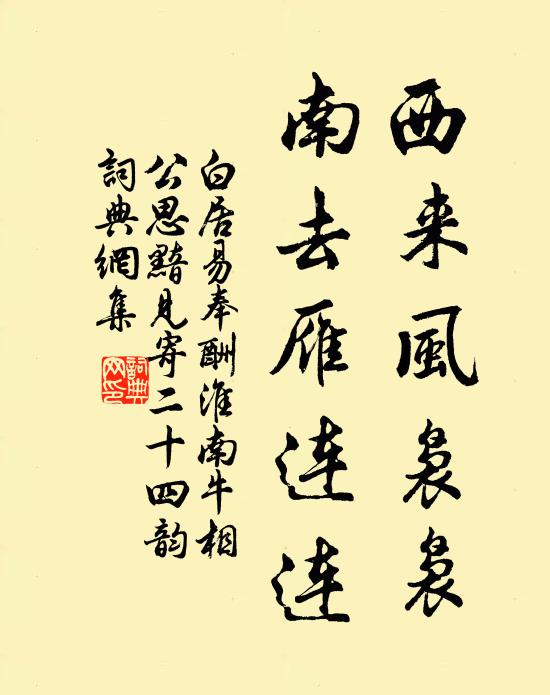 西来風裊裊
南去雁連連
白居易奉酬淮南牛相
公思黯見寄二十四韵
詞典網集
詞典网印